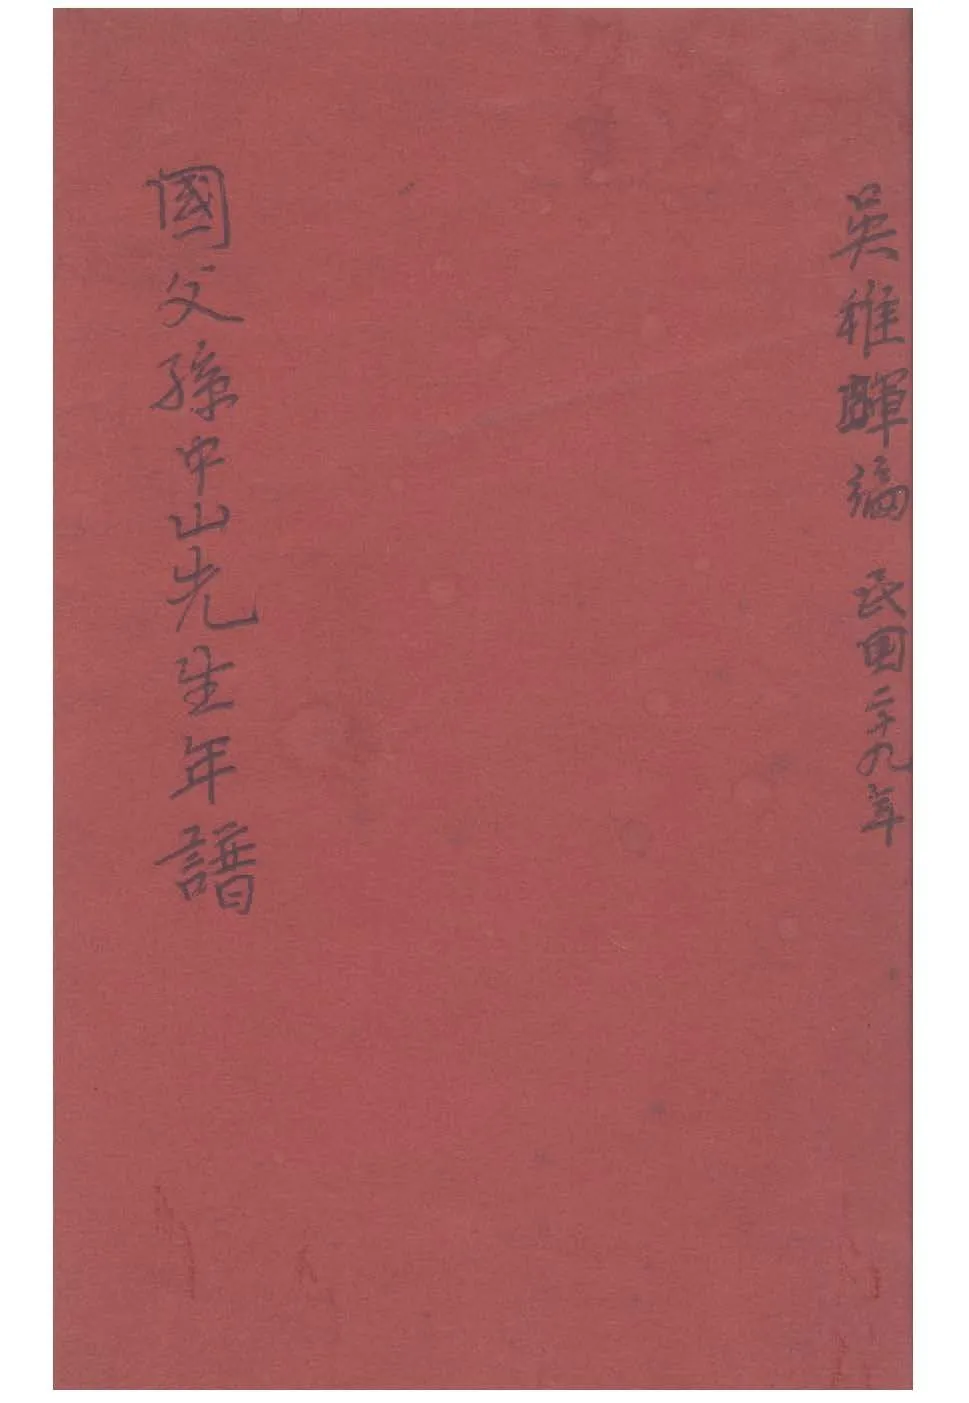 吳稚暉編 民国二十九年
國父孫中山先生年譜